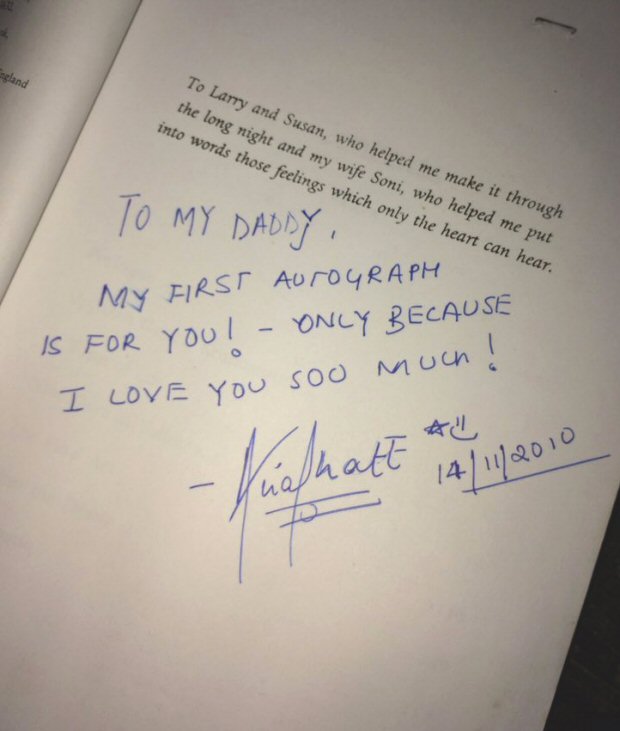 England
To Larry and Susan, who helped me make it through
the long night and my wife Soni, who helped me put
into words those feelings which only the heart can hear.
TO MY DADDY,
MY FIRST AUTOGRAPH
IS FOR YOU! - ONLY BECAUSE
I LOVE YOU SOO MUCH!
14/11/2010